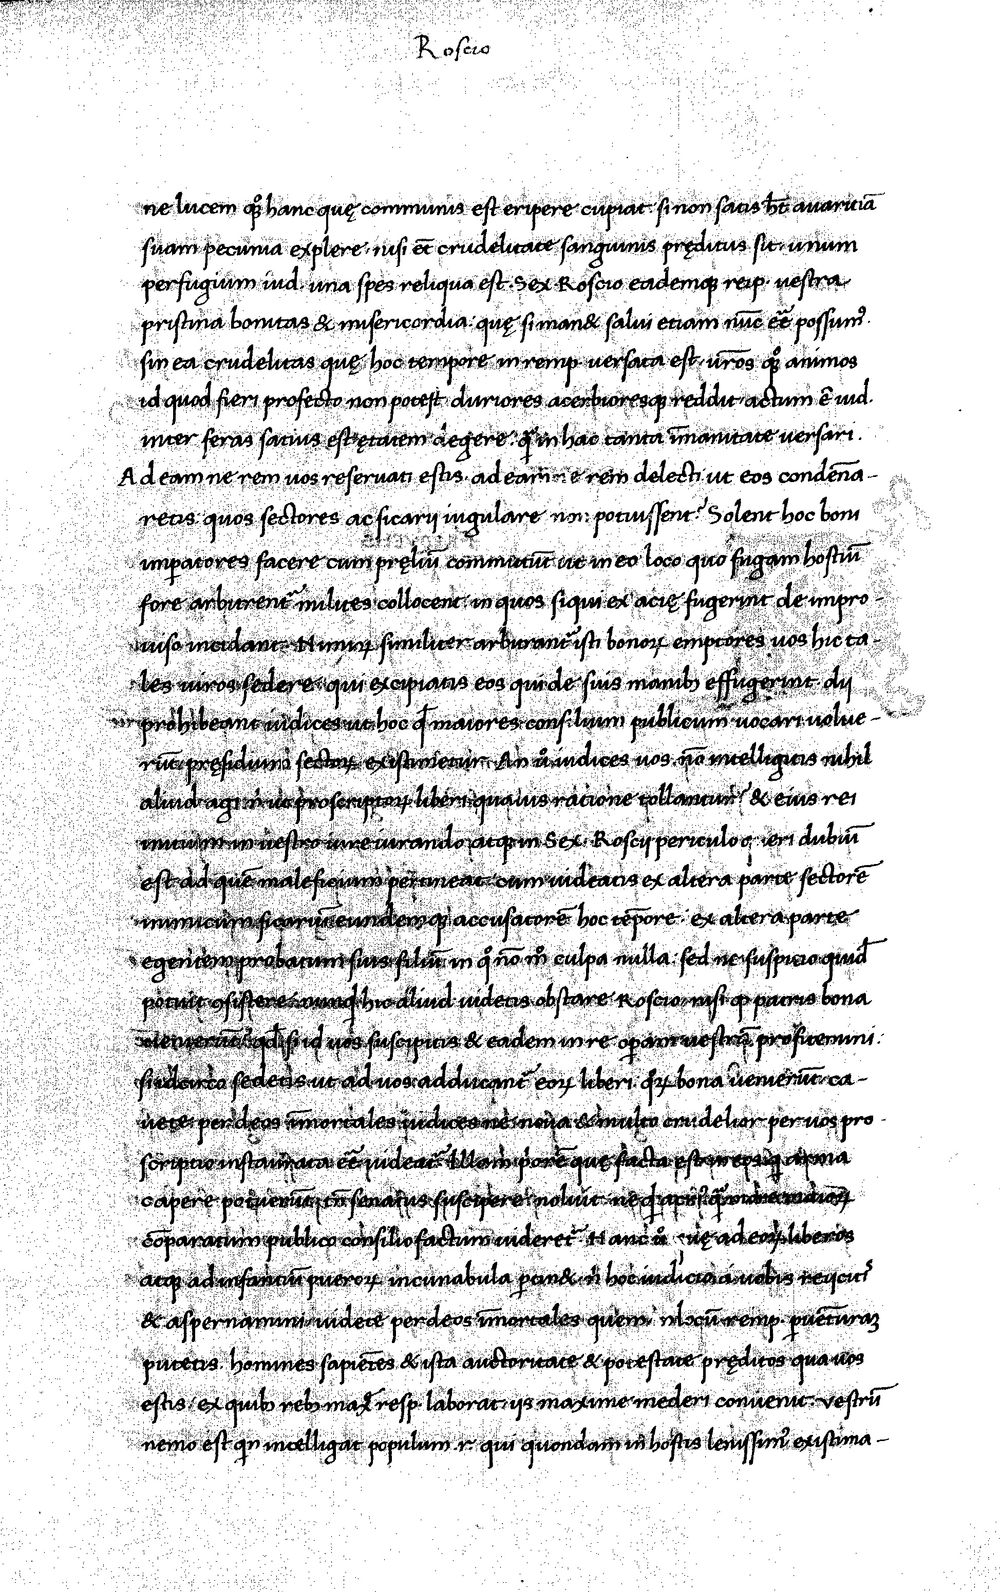 Roscio
ne lucem qͦꝫ hanc quę communis est eripere cupiat. si non satis hēt auaritiā
suam pecunia explere. nisi ēt crudelitate sanguinis pręditus sit. unum
perfugium iud. una spes reliqua est. Sex Roscio eademqꝫ reip. uestra
pristina bonitas & misericordia. quę si man& salui etiam nūc eē possum᾽.
sin ea crudelitas quę hoc tempore in remp. uersata est. ur̄os qͦꝫ animos
id quod fieri profecto non potest duriores acerbioresqꝫ reddit. actum ē iud.
inter feras satius est ętatem degere. q̄ in hac tanta īmanitate uersari.
Ad eam ne rem uos reseruati estis. ad eam ne rem delecti ut eos condēna-
retis. quos sectores ac sicarij iugulare non potuissent? Solent hoc boni
imꝑatores facere cum pręliū committūt ut in eo loco quo fugam hostiū
fore arbitrent᾽ milites collocent. in quos siqui ex acię fugerint de impro-
uiso incidant. Nimiꝝ similiter arbitrant᾽ isti bonoꝝ emptores uos hic ta-
les uiros sedere. qui excipiatis eos qui de suis manibꝫ effugerint. dij
prohibeant iudices ut hoc qd̄ maiores consilium publicum uocari uolue-
rūt pręsidium sectoꝝ existimetur. An uͦ iudices uos nō intelligitis nihil
aliud agi n̄ ut proscriptoꝝ liberi quauis ratione tollantur? & eius rei
initium in uestro iure iurando atqꝫ in Sex. Roscij periculo q eri dubiū
est ad quē maleficium pertineat. cum uideatis ex altera parte sectorē
inimicum sicariū eundemqꝫ accusatorē hoc tēpore. ex altera parte
egentem probatum suis filiū in qͦ nō mͦ culpa nulla. sed ne suspicio quid̄
potuit ꝯsistere. nunqd hic aliud uidetis obstare Roscio. nisi ꝙ patris bona
uenierūt? qd̄ si id uos suscipitis & eadem in re oꝑam uestrā profitemini.
si idcirco sedetis ut ad uos adducant᾽ eoꝝ liberi. qͦꝝ bona uenierūt. ca-
uete per deos īmortales iudices ne noua & multo crudelior per uos pro-
scriptio instaurata eē uideat᾽. Illam priorē quę facta est in eos qui arma
capere potuerūt. tn̄ senatus suscipere noluit ne qd
cōparatum publico consilio factum uideret᾽. Hanc uͦ quę ad eoꝝ liberos
atqꝫ ad infantiū pueroꝝ incunabula ꝑtin& n̄ hoc iudicio a uobis reijcit᾽
& aspernamini. uidete per deos īmortales quem in locū remp. ꝑuēturaꝫ
putetis. homines sapiētes & ista auctoritate & potestate pręditos qua uos
estis. ex quibꝫ rebꝫ maxͤ resp. laborat. ijs maxime mederi conuenit. Vestrū
nemo est qn intelligat populum r. qui quondam in hostis lenissim᾽ existima-